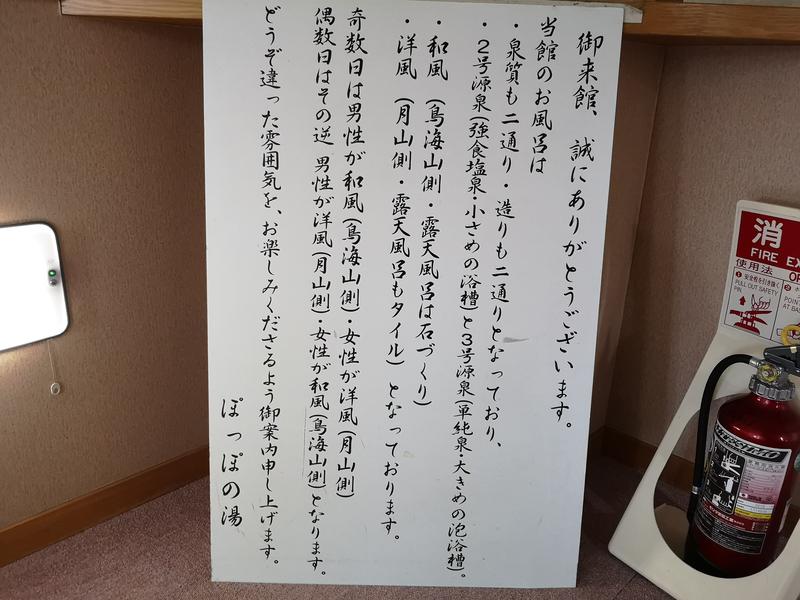 御来館、誠にありがとうございます。
当館のお風呂は
・泉質も二通り・造りも二通りとなっており、
・2号源泉(強食塩泉・小さめの浴槽)と3号源泉(単純泉・大きめの泡浴槽)。
・和風(鳥海山側・露天風呂は石づくり)
・洋風(月山側・露天風呂もタイル)となっております。
奇数日は男性が和風(鳥海山側)・女性が洋風(月山側)
偶数日はその逆 男性が洋風(月山側)・女性が和風(鳥海山側)となります。
どうぞ違った雰囲気を、お楽しみくださるよう御案内申し上げます。
ぽっぽの湯
消
FIRE EX
使用法
PULL OUT SAFETY
PIN.